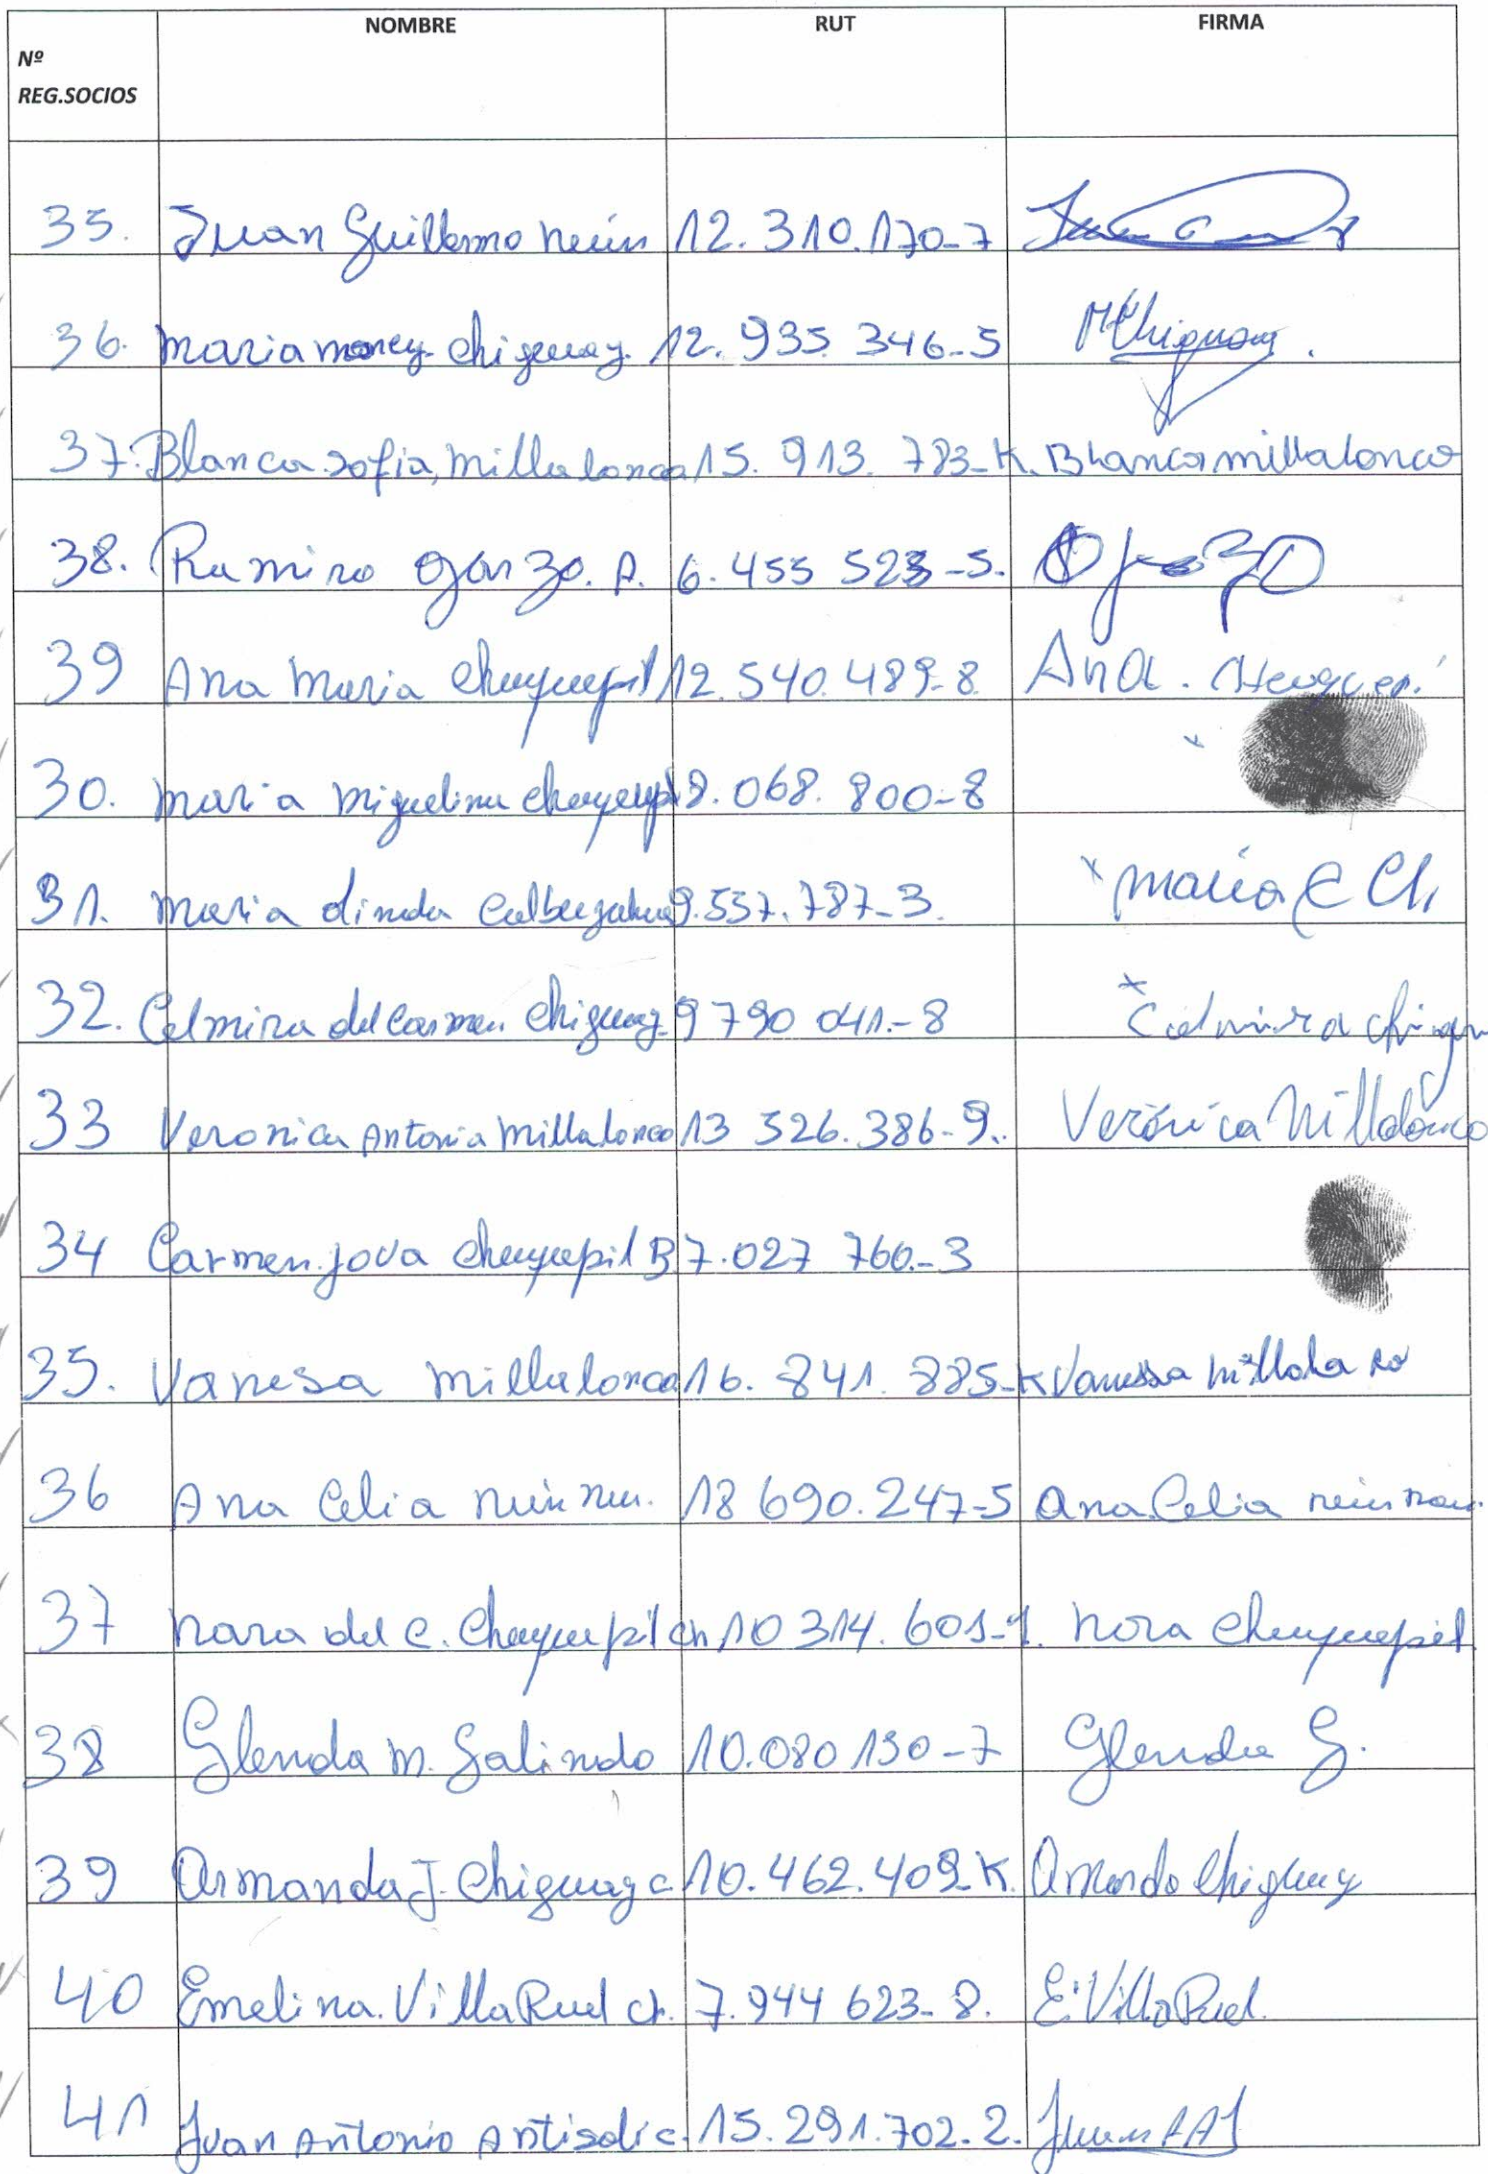 Nº REG.SOCIOS NOMBRE RUT FIRMA
35. Juan Guillermo neún 12.310.170-7
36. maria money chiguay. 12. 935 346-5 MChiguay.
37. Blanca sofia, millalonco 15. 913. 783-K. Blanca millalonco
38. Ramiro garzo. A. 6. 455 523-5.
39 Ana maria Cheuquepil 12. 540. 489-8 Ana.
30. maria miguelina cheuquepil 8. 068. 800-8 x
31. maria linda 9. 557. 787-3. x maria E Ch,
32. Celmira del Carmen Chiguay 9 790 041.-8 x Celmira chigu
33 Veronica Antonia millalonco 13 526. 386-9.. Verónica Millalonco
34 Carmen jova cheuquepil B 7.027 760.-3
35. Vanesa millalonco 16. 841. 885-K Vanessa
36 Ana Celia 18 690. 247-5 Ana Celia
37 nora del C. Cheuquepil ch 10 314. 601-1. nora Cheuquepil
38 Glenda m. Galindo 10.080 130-7 Glenda G.
39 Armanda J. Chiguay c. 10. 462. 409-K. Armando Chiguay
40 Emelina. VillaRuel ch. 7. 944 623-8. E. VillaRuel.
41 Juan Antonio Antisolic. 15. 291. 702. 2.